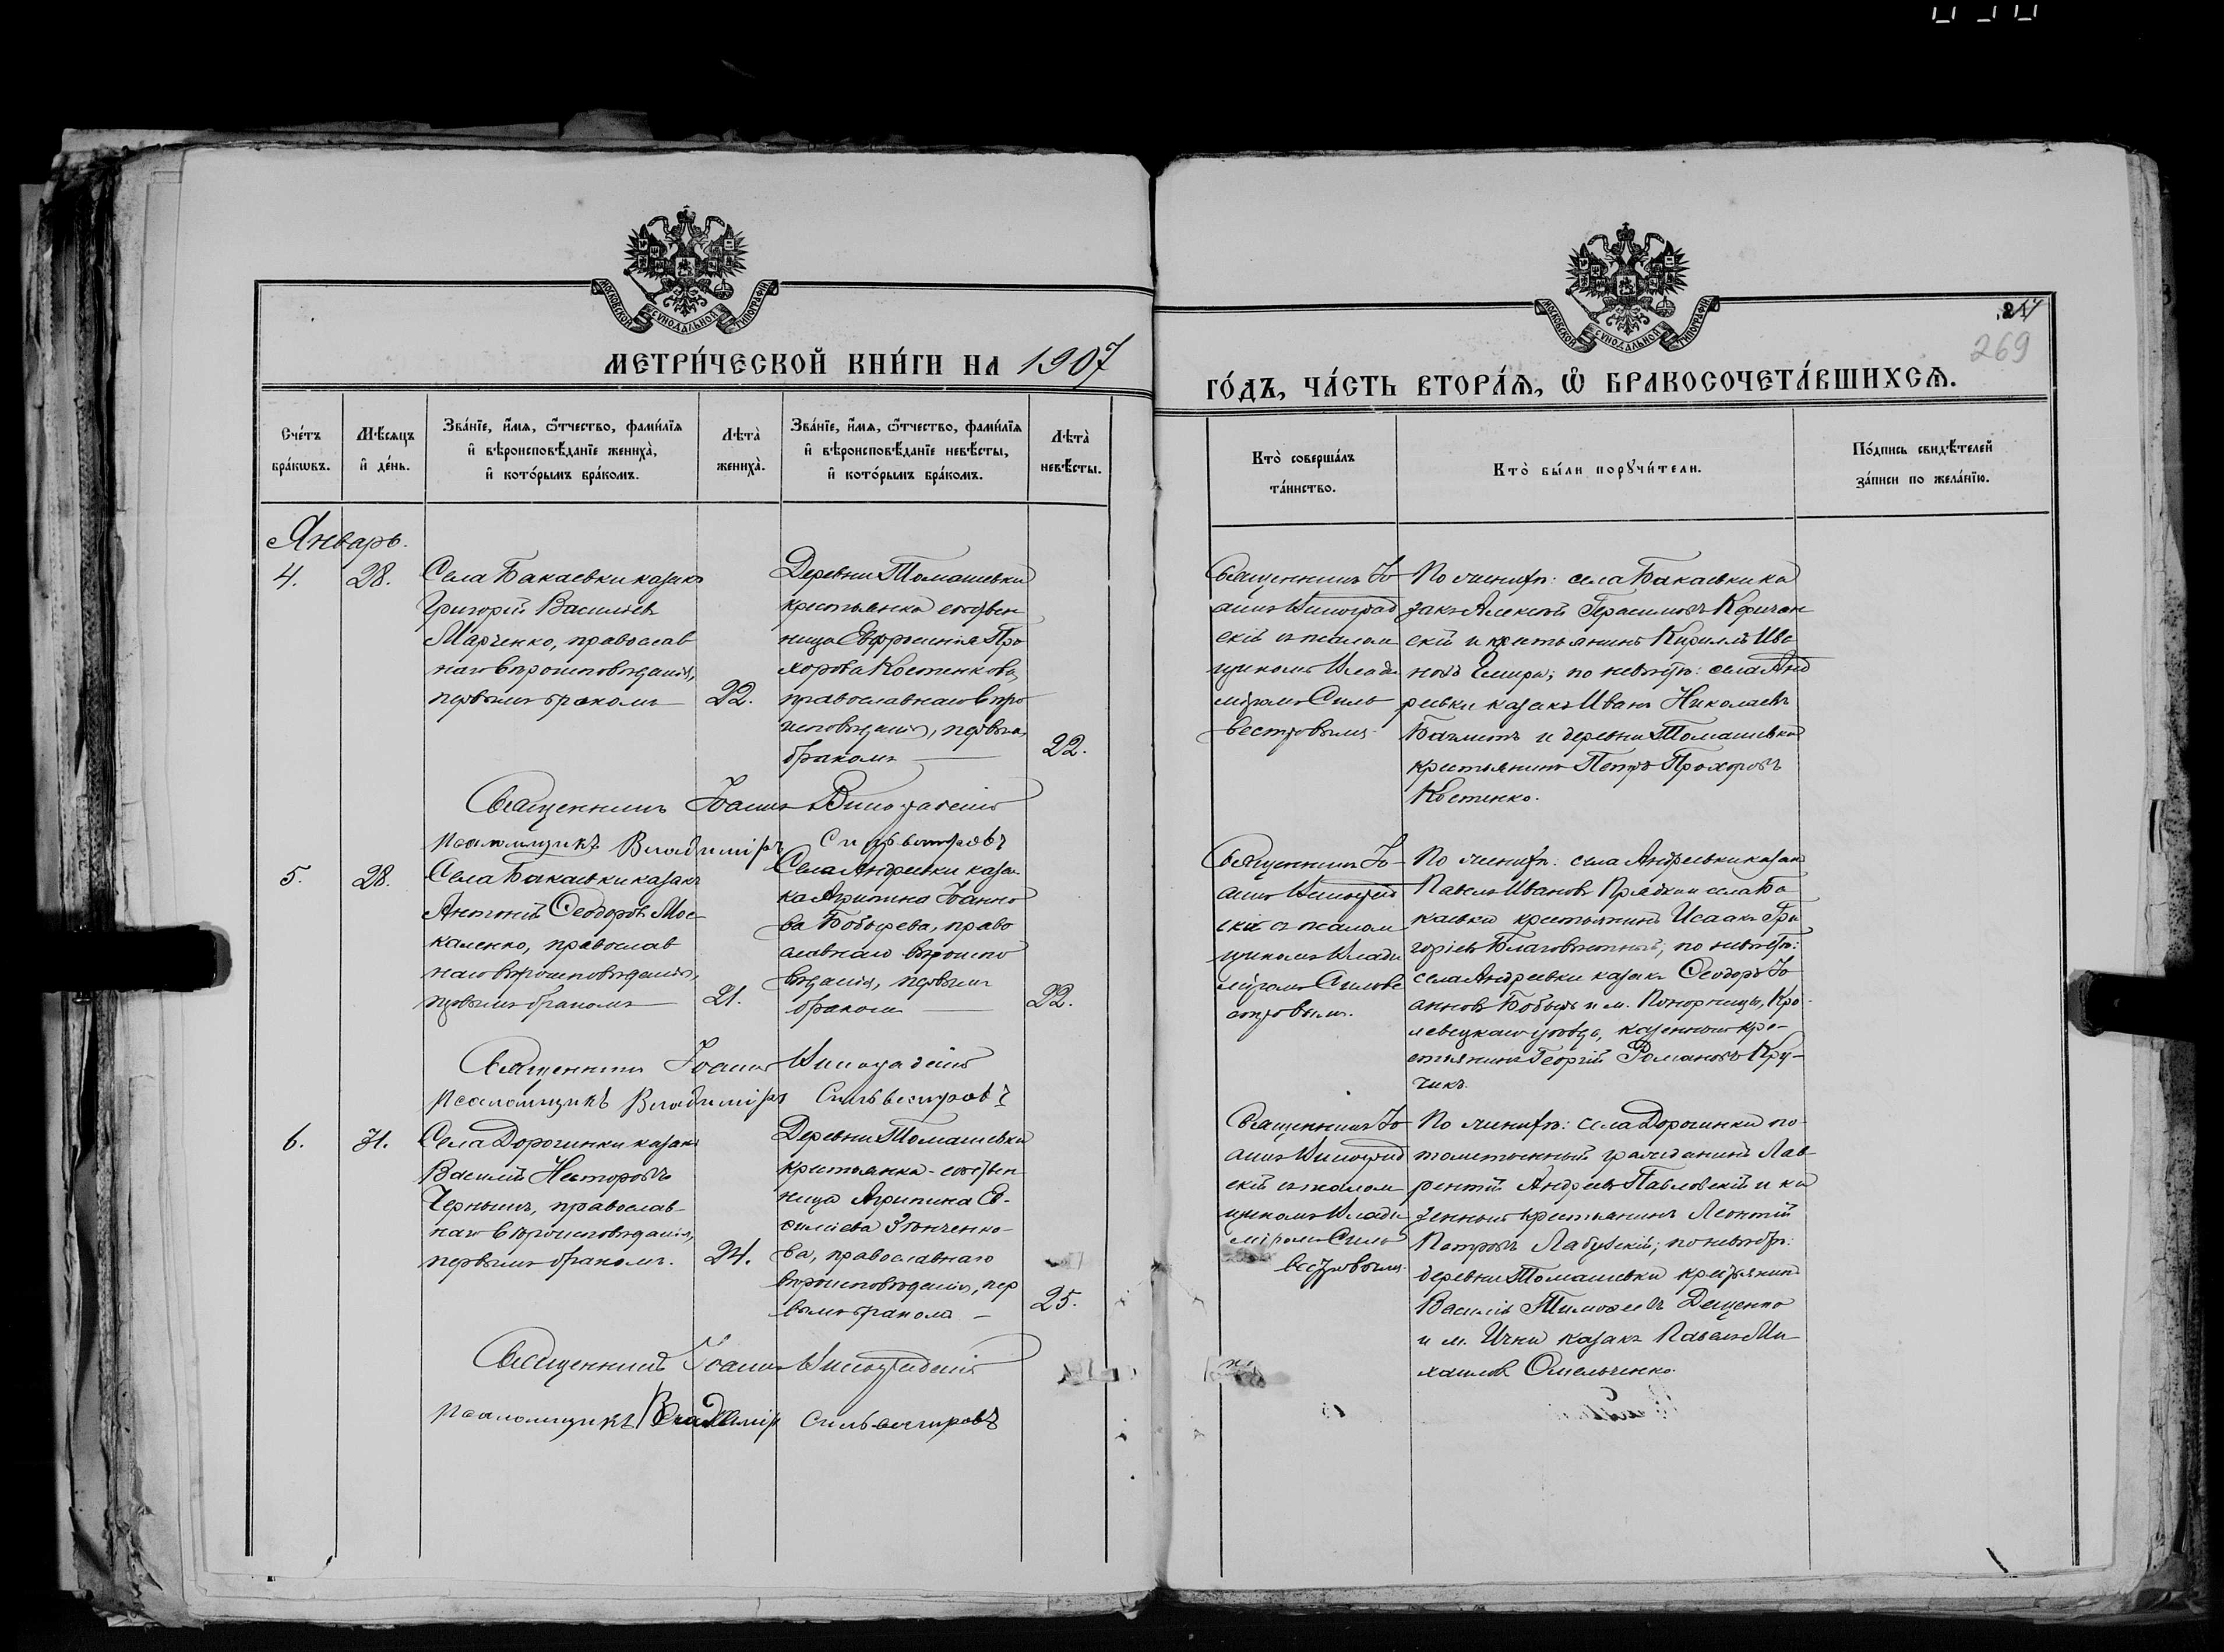 МОСКОВСКОЙ СУНОДАЛЬНОЙ ТИПОГРАФІИ
МЕТРИ́ЧЕСКОЙ КНИ́ГИ НА 1907
Сче́тъ бра́кωвъ.
Мѣ́сяцъ и҆ де́нь.
Зва́нїе, и҆́мѧ, ѻ҆́тчество, фами́лїѧ
и҆ вѣроисповѣ́данїе жениха̀,
и҆ кото́рымъ бра́комъ.
Лѣта̀ жениха̀.
Зва́нїе, и҆́мѧ, ѻ҆́тчество, фами́лїѧ
и҆ вѣроисповѣ́данїе невѣ́сты,
и҆ кото́рымъ бра́комъ.
Лѣта̀ невѣ́сты.
Январь.
4.
28.
Села Бакаевки казакъ
Григорій Васильевъ
Марченко, православ
наго вѣроисповѣданія,
первымъ бракомъ
22.
Деревни Томашевки
крестьянка собствен
ница Евфросинія Про
хорова Костенкова,
православнаго вѣро
исповѣданія, первымъ
бракомъ
22.
Священникъ Іоаннъ Виноградскій
Псаломщикъ Владиміръ Сильвестровъ
5.
28.
Села Бакаевки казакъ
Антоній Ѳеодоровъ Мос
каленко, православ
наго вѣроисповѣданія,
первымъ бракомъ
21.
Села Андреевки казач
ка Агрипина Іоанно
ва Бобырева, право
славнаго вѣроиспо
вѣданія, первымъ
бракомъ
22.
Священникъ Іоаннъ Виноградскій
Псаломщикъ Владиміръ Сильвестровъ
6.
31.
Села Дорогинки казакъ
Василій Несторовъ
Чернышъ, православ-
наго вѣроисповѣданія,
первымъ бракомъ.
24.
Деревни Томашевки
крестьянка-собствен
ница Агрипина
ва, православнаго
вѣроисповѣданія, пер
вымъ бракомъ
25.
Священникъ Іоаннъ Виноградскій
Псаломщикъ Владиміръ Сильвестровъ
МОСКОВСКОЙ СУНОДАЛЬНОЙ ТИПОГРАФІИ
269
ГО́ДЪ, ЧА́СТЬ ВТОРА́Ѧ, Ѽ БРАКОСОЧЕТА́ВШИХСѦ.
Кто̀ соверша́лъ
та́инство.
Кто̀ бы́ли порꙋчи́тели.
По́дпись свидѣ́телей
за́писи по жела́нїю.
Священникъ Іо
аннъ Виноград
скій съ псалом
щикомъ Влади
міромъ Силь
вестровымъ.
По женихѣ: села Бакаевки ка
закъ Алексій Герасимовъ
скій и крестьянинъ Кириллъ Ива
новъ по невѣстѣ: села Анд
реевки казакъ Иванъ Николаевъ
и деревни Томашевки
крестьянинъ Петръ Прохоровъ
Костенко.
Священникъ Іо
аннъ Виноград
скій съ псалом
щикомъ Влади
міромъ Сильве
стровымъ.
По женихѣ: села Андреевки казакъ
Павелъ Ивановъ Прядко и села Ба
каевки крестьянинъ Исаакъ Гри
горіевъ по невѣстѣ:
села Андреевки казакъ Ѳеодоръ Іо
анновъ Бобырь и м. Понорницы, Кро-
левецкаго уѣзда, казенный кре-
стьянинъ Георгій Романовъ Кру-
чикъ.
Священникъ Іо
аннъ Виноград
скій съ псалом
щикомъ Влади
міромъ Силь
вестровымъ.
По женихѣ: села Дорогинки по-
томственный гражданинъ Лав
рентій Андреевъ Павловскій и ка
зенный крестьянинъ Леонтій
Петровъ по невѣстѣ:
деревни Томашевки крестьянинъ
Василій Тимоѳеевъ Деценко
и м. Ични казакъ Павелъ Ми
хаиловъ Омельченко.